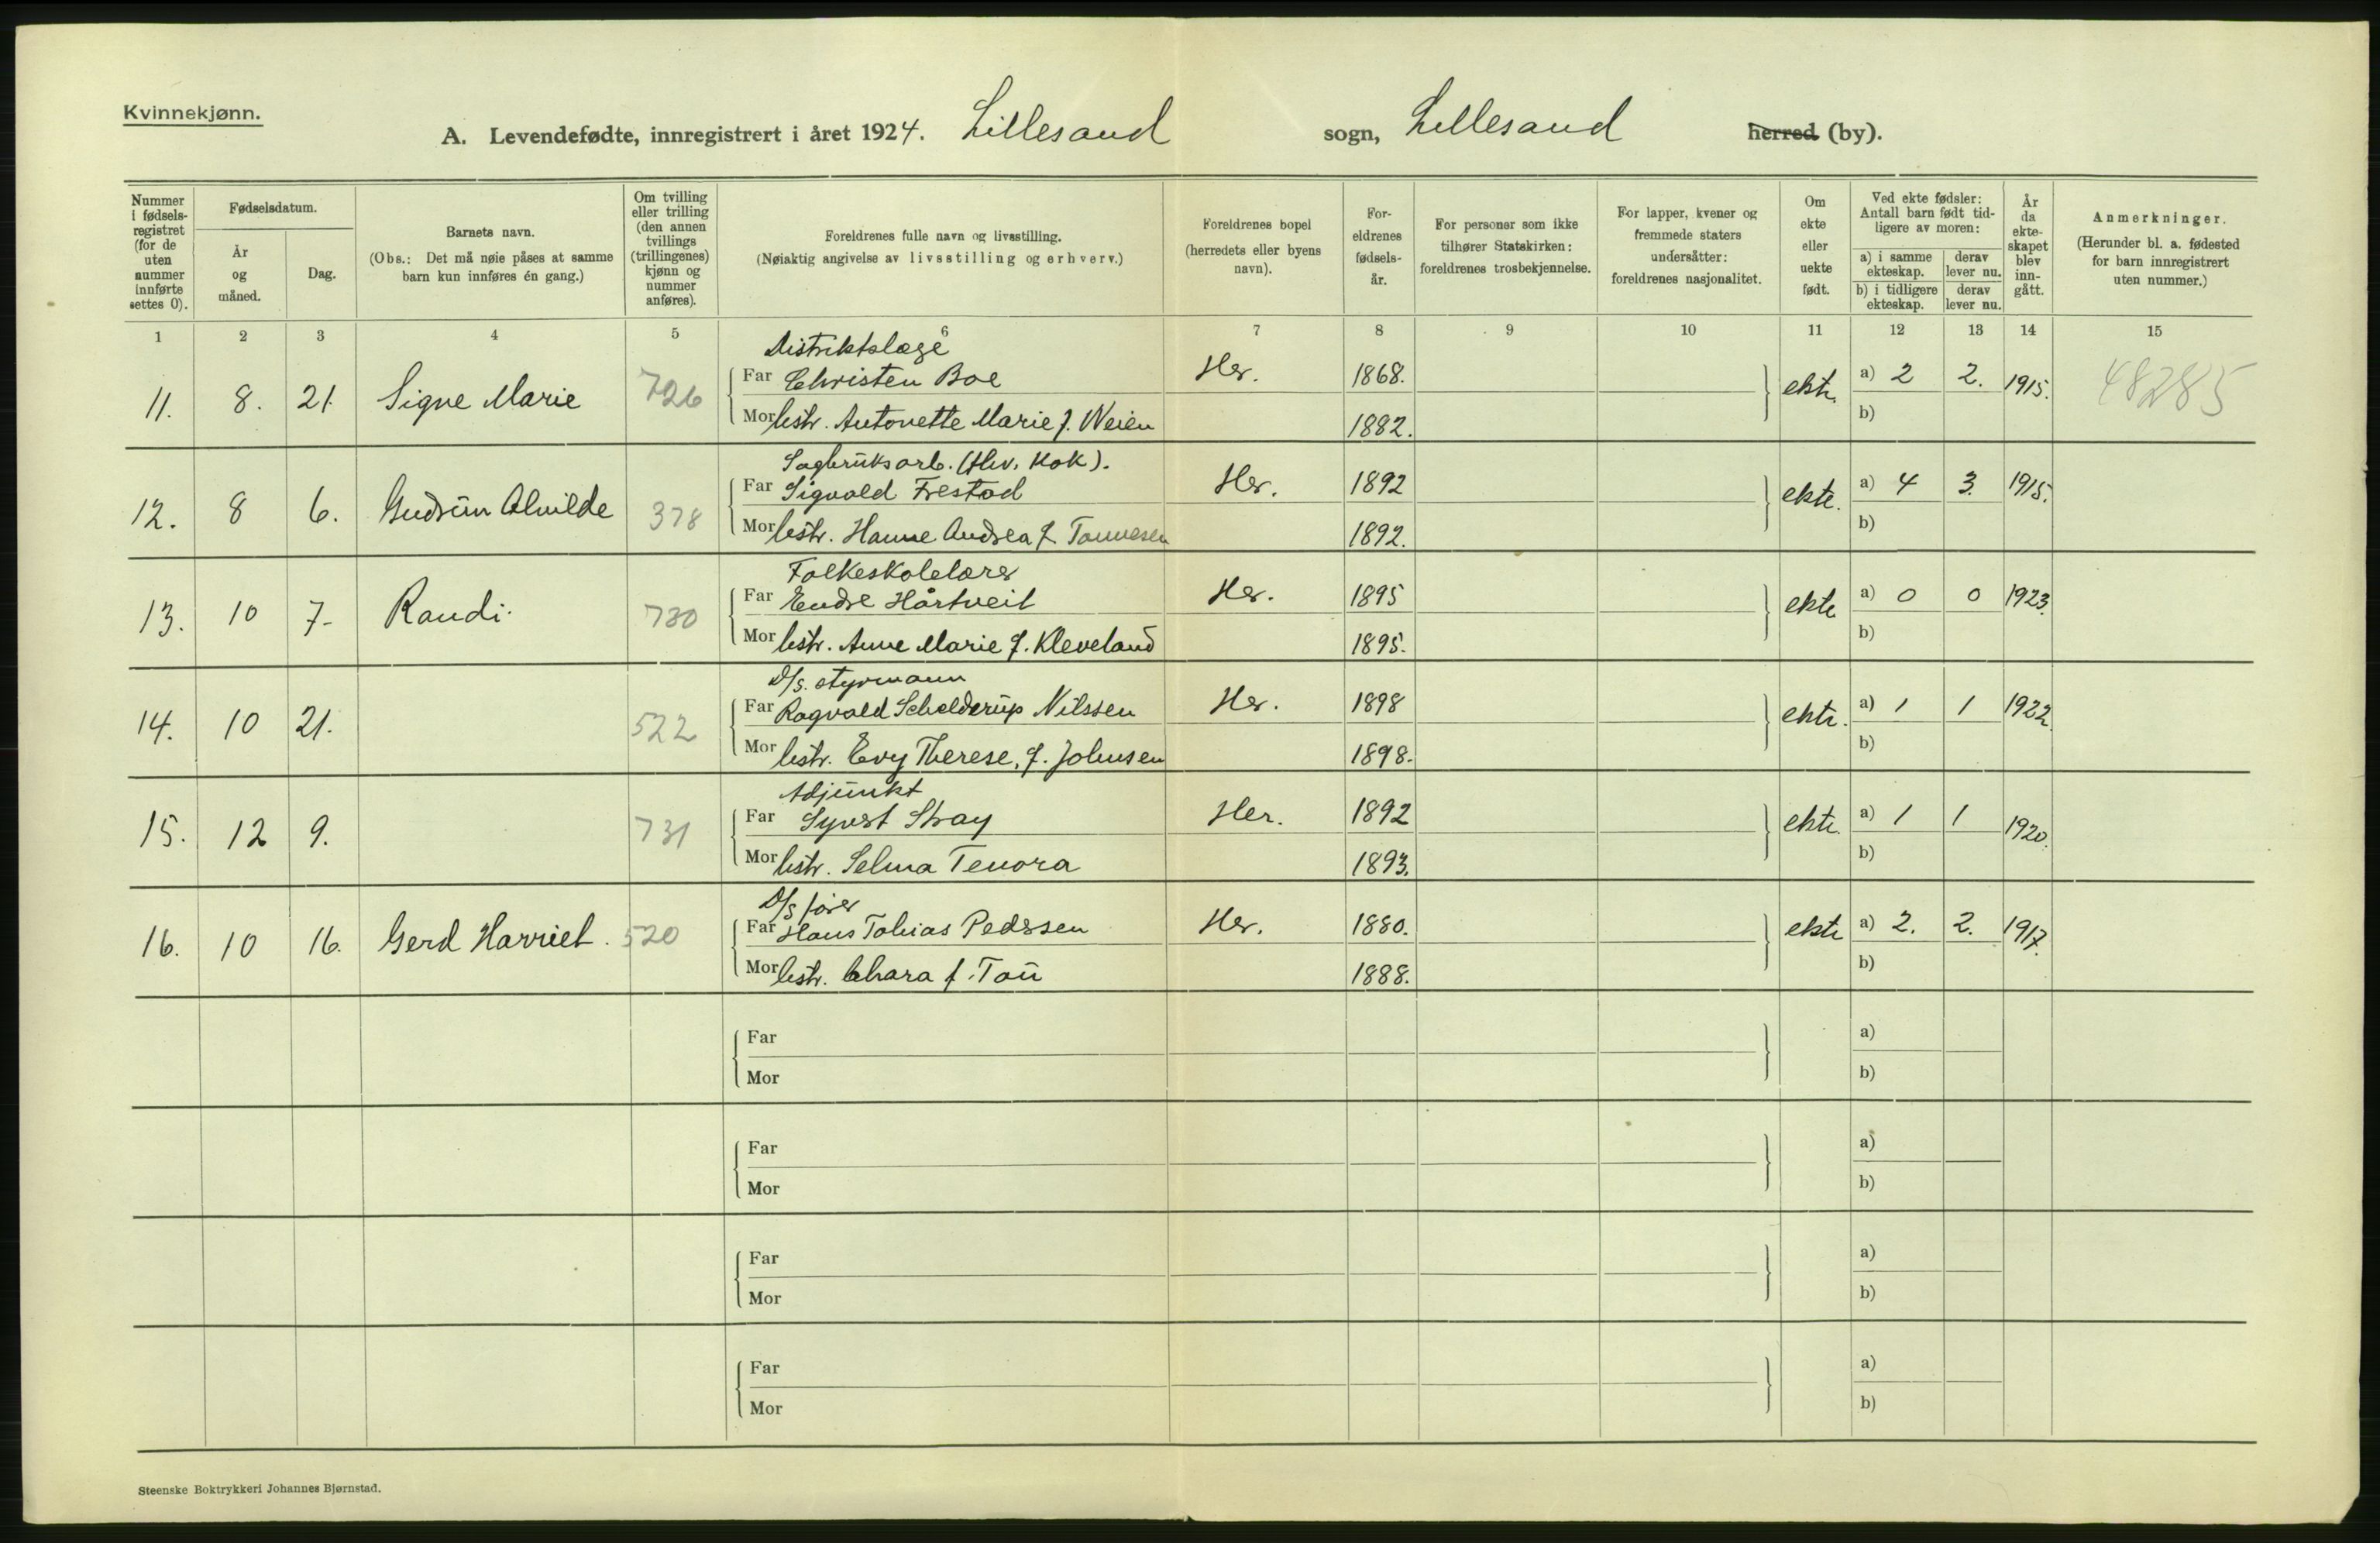 Kvinnekjønn.
A. Levendefødte, innregistrert i året 1924. Lillesand sogn, Lillesand herred (by).
Nummer i fødsels-registret (for de uten nummer innførte settes 0).
Fødselsdatum.
År og måned.
Dag.
Barnets navn.
(Obs.: Det må nøie påses at samme barn kun innføres én gang.)
Om tvilling eller trilling (den annen tvillings (trillingenes) kjønn og nummer anføres).
Foreldrenes fulle navn og livsstilling.
(Nøiaktig angivelse av livsstilling og erhverv.)
Foreldrenes bopel (herredets eller byens navn).
For-eldrenes fødsels-år.
For personer som ikke tilhører Statskirken: foreldrenes trosbekjennelse.
For lapper, kvener og fremmede staters undersåtter: foreldrenes nasjonalitet.
Om ekte eller uekte født.
Ved ekte fødsler: Antall barn født tid-ligere av moren:
a) i samme ekteskap. derav lever nu.
b) i tidligere ekteskap. derav lever nu.
År da ekte-skapet blev inn-gått.
Anmerkninger.
(Herunder bl. a. fødested for barn innregistrert uten nummer.)
1 2 3 4 5 6 7 8 9 10 11 12 13 14 15
Distriktslæge
11. 8. 21. Signe Marie 726 Far Christen Boe Her. 1868. ekte. a) 2 2. 1915. 48285
Mor hstr. Antonette Marie f. Weien 1882. b)
Sagbruksarb. (Høv. Kok).
12. 8 6. Gudrun Alvilde 378 Far Sigvald Frestad Her. 1892 ekte. a) 4 3. 1915.
Mor hstr. Hanne Andrea f. Tønnesen 1892. b)
Folkeskolelærer
13. 10 7. Randi. 730 Far Endre Hårtveit Her. 1895 ekte a) 0 0 1923.
Mor hstr. Anne Marie f. Kleveland 1895. b)
D/s. styrmann
14. 10 21. 522 Far Ragvald Schelderup Nilssen Her. 1898 ekte. a) 1 1 1922.
Mor hstr. Evy Therese, f. Johnsen 1898. b)
Adjunkt
15. 12 9. 731 Far Syvert Stray Her. 1892 ekte. a) 1 1 1920.
Mor hstr. Selma Tenora 1893. b)
D/s fører
16. 10 16. Gerd Harriet. 520 Far Hans Tobias Pedersen Her. 1880. ekte a) 2. 2. 1917.
Mor hstr. Chara f. Tau 1888. b)
Far a)
Mor b)
Far a)
Mor b)
Far a)
Mor b)
Far a)
Mor b)
Steenske Boktrykkeri Johannes Bjørnstad.